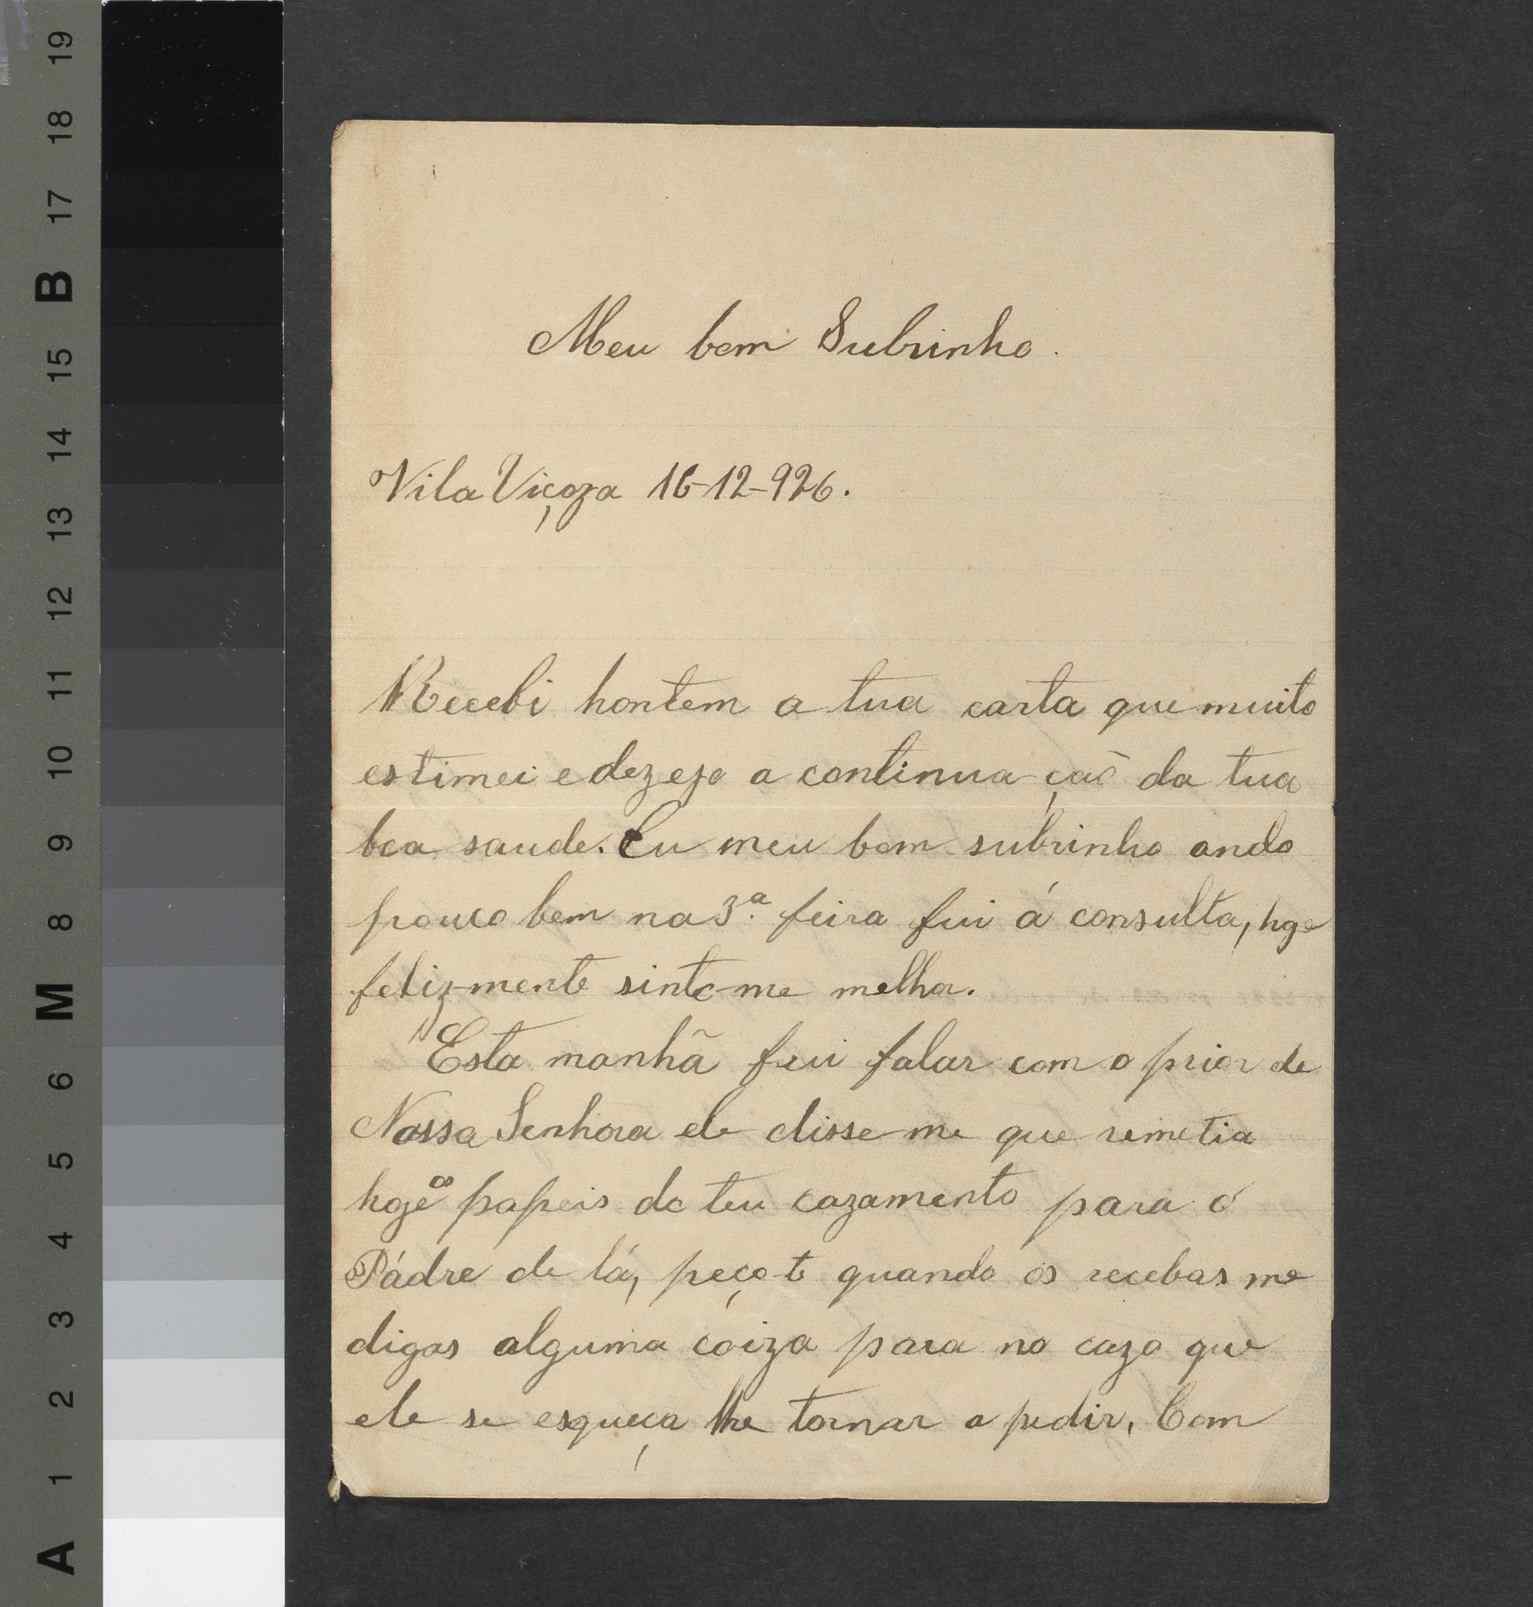 19
18
17
B
15
14
13
12
11
10
9
8
M
6
5
4
3
2
1
A
Meu bom Subrinho.
Vila Viçoza 16-12-926.
Recebi hontem a tua carta que muito
estimei e dezejo a continua-çaõ da tua
boa saude. Eu meu bom subrinho ando
pouco bem na 3.ª feira fui á consulta, hoje
feliz-mente sinto-me melhor.
Esta manhã fui falar com o prior de
Nossa Senhora ele disse-me que remetia
hoje os papeis do teu cazamento para o
Pádre de lá, peço-te quando os recebas me
digas alguma coiza para no cazo que
ele se esqueça lhe tornar a pedir. Com